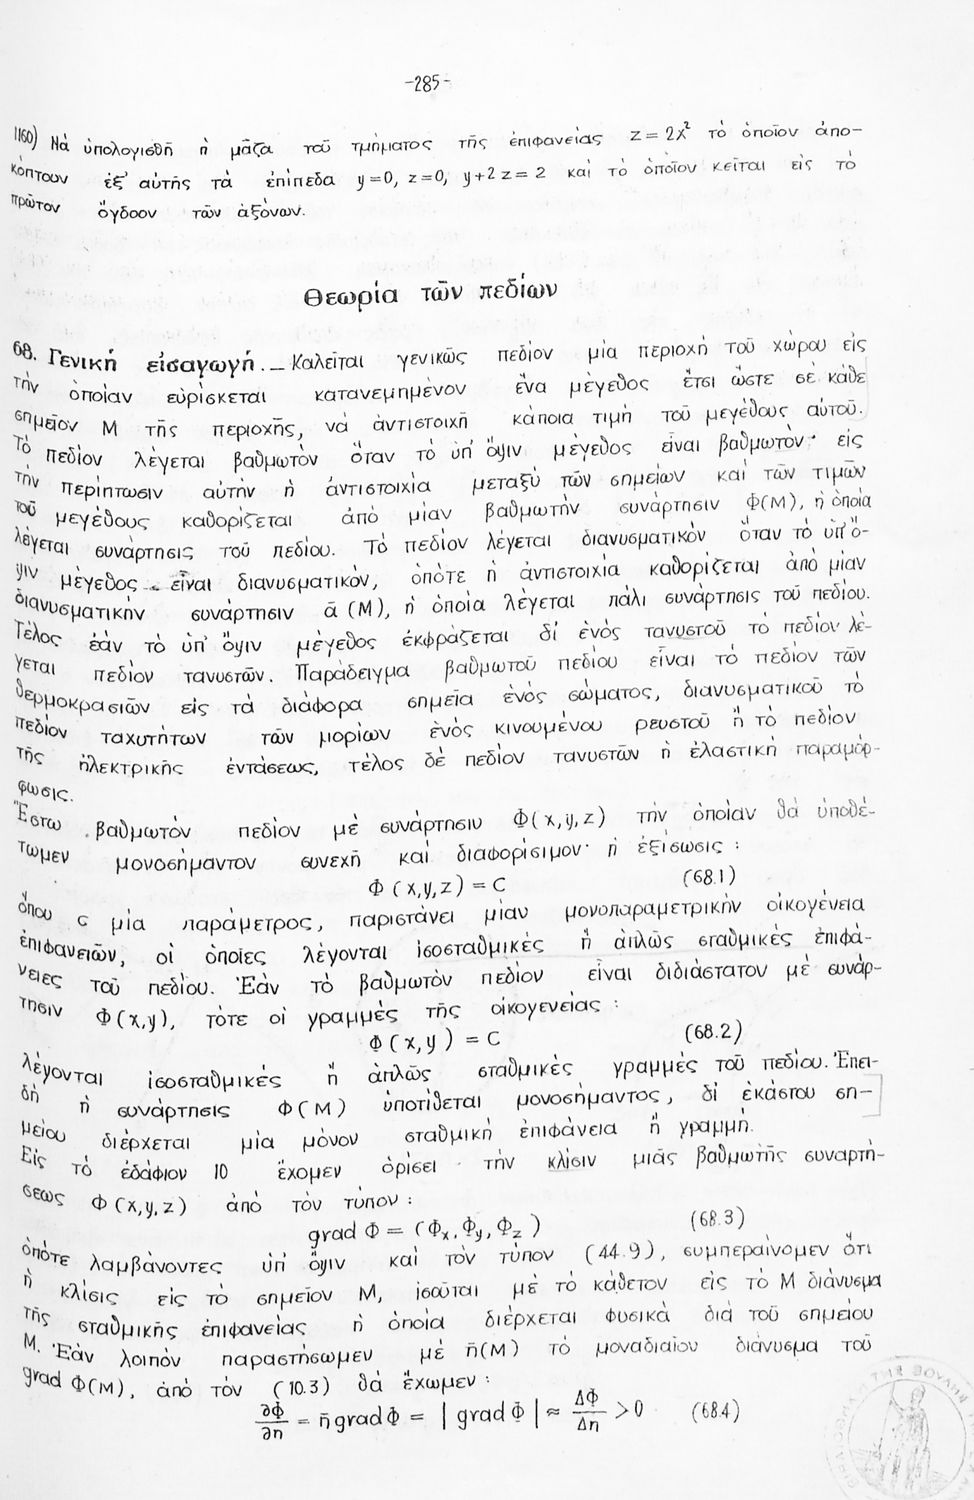 -285-
1160) Νὰ ὑπολογισθῇ ἡ μᾶζα τοῦ τμήματος τῆς ἐπιφανείας z = 2x² τὸ ὁποῖον ἀπο-
κόπτουν ἐξ' αὐτῆς τὰ ἐπίπεδα y=0, z=0, y+2z=2 καὶ τὸ ὁποῖον κεῖται εἰς τὸ
πρῶτον ὄγδοον τῶν ἀξόνων.
Θεωρία τῶν πεδίων
68. Γενικὴ εἰσαγωγή.— Καλεῖται γενικῶς πεδίον μία περιοχὴ τοῦ χώρου εἰς
τὴν ὁποίαν εὑρίσκεται κατανεμημένον ἕνα μέγεθος ἔτσι ὥστε σὲ κάθε
σημεῖον Μ τῆς περιοχῆς, νὰ ἀντιστοιχῇ κάποια τιμὴ τοῦ μεγέθους αὐτοῦ.
Τὸ πεδίον λέγεται βαθμωτὸν ὅταν τὸ ὑπ' ὄψιν μέγεθος εἶναι βαθμωτὸν· εἰς
τὴν περίπτωσιν αὐτὴν ἡ ἀντιστοιχία μεταξὺ τῶν σημείων καὶ τῶν τιμῶν
τοῦ μεγέθους καθορίζεται ἀπὸ μίαν βαθμωτὴν συνάρτησιν Φ(Μ), ἡ ὁποία
λέγεται συνάρτησις τοῦ πεδίου. Τὸ πεδίον λέγεται διανυσματικὸν ὅταν τὸ ὑπ' ὄ-
ψιν μέγεθος εἶναι διανυσματικὸν, ὁπότε ἡ ἀντιστοιχία καθορίζεται ἀπὸ μίαν
διανυσματικὴν συνάρτησιν ᾱ(Μ), ἡ ὁποία λέγεται πάλι συνάρτησις τοῦ πεδίου.
Τέλος ἐὰν τὸ ὑπ' ὄψιν μέγεθος ἐκφράζεται δι' ἑνὸς τανυστοῦ τὸ πεδίον λέ-
γεται πεδίον τανυστῶν. Παράδειγμα βαθμωτοῦ πεδίου εἶναι τὸ πεδίον τῶν
θερμοκρασιῶν εἰς τὰ διάφορα σημεῖα ἑνὸς σώματος, διανυσματικοῦ τὸ
πεδίον ταχυτήτων τῶν μορίων ἑνὸς κινουμένου ρευστοῦ ἢ τὸ πεδίον
τῆς ἠλεκτρικῆς ἐντάσεως, τέλος δὲ πεδίον τανυστῶν ἡ ἐλαστικὴ παραμόρ-
φωσις.
Ἔστω βαθμωτὸν πεδίον μὲ συνάρτησιν Φ(x,y,z) τὴν ὁποίαν θὰ ὑποθέ-
τωμεν μονοσήμαντον συνεχῆ καὶ διαφορίσιμον· ἡ ἐξίσωσις :
Φ(x,y,z) = C (68.1)
ὅπου c μία παράμετρος, παριστάνει μίαν μονοπαραμετρικὴν οἰκογένεια
ἐπιφανειῶν, οἱ ὁποῖες λέγονται ἰσοσταθμικὲς ἢ ἁπλῶς σταθμικὲς ἐπιφά-
νειες τοῦ πεδίου. Ἐὰν τὸ βαθμωτὸν πεδίον εἶναι διδιάστατον μὲ συνάρ-
τησιν Φ(x,y), τότε οἱ γραμμὲς τῆς οἰκογενείας :
Φ(x,y) = C (68.2)
λέγονται ἰσοσταθμικὲς ἢ ἁπλῶς σταθμικὲς γραμμὲς τοῦ πεδίου. Ἐπει-
δὴ ἡ συνάρτησις Φ(Μ) ὑποτίθεται μονοσήμαντος, δι' ἑκάστου ση-
μείου διέρχεται μία μόνον σταθμικὴ ἐπιφάνεια ἢ γραμμή.
Εἰς τὸ ἐδάφιον 10 ἔχομεν ὁρίσει τὴν κλίσιν μιᾶς βαθμωτῆς συναρτή-
σεως Φ(x,y,z) ἀπὸ τὸν τύπον :
grad Φ = (Φx, Φy, Φz) (68.3)
ὁπότε λαμβάνοντες ὑπ' ὄψιν καὶ τὸν τύπον (44.9), συμπεραίνομεν ὅτι
ἡ κλίσις εἰς τὸ σημεῖον Μ, ἰσοῦται μὲ τὸ κάθετον εἰς τὸ Μ διάνυσμα
τῆς σταθμικῆς ἐπιφανείας ἡ ὁποία διέρχεται φυσικὰ διὰ τοῦ σημείου
Μ. Ἐὰν λοιπὸν παραστήσωμεν μὲ n̄(Μ) τὸ μοναδιαῖον διάνυσμα τοῦ
grad Φ(Μ), ἀπὸ τὸν (10.3) θὰ ἔχωμεν :
∂Φ/∂n = n̄ grad Φ = |grad Φ| ≈ ΔΦ/Δn > 0 (68.4)